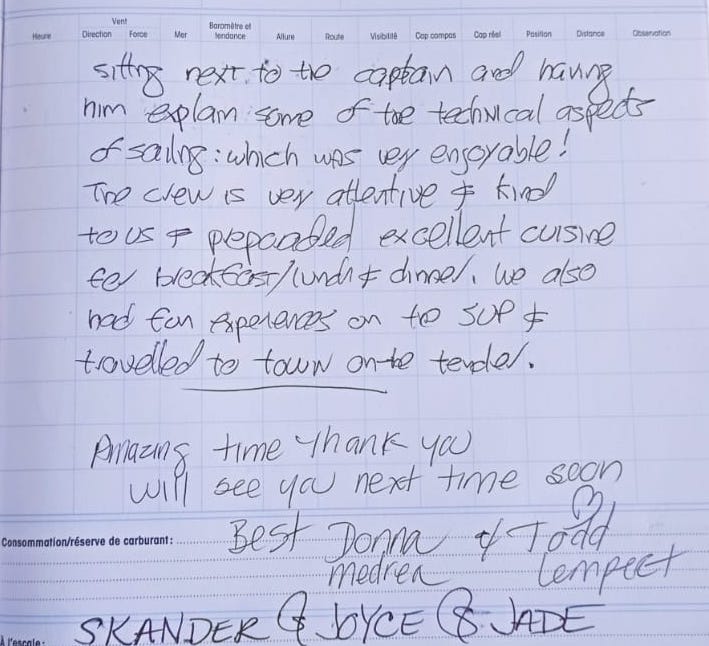 Vent
Baromètre et
Heure Direction Force Mer tendance Allure Route Visibilité Cap compas Cap réel Position Distance Observation
sitting next to the captain and having
him explain some of the technical aspects
of sailing: which was very enjoyable!
The crew is very attentive & kind
to us & prepaaded excellent cuisine
for breakfast/lunch & dinner. We also
had fun experiences on the SUP &
travelled to town on the tender.
Amazing time thank you
will see you next time soon
Consommation/réserve de carburant : Best Donna & Todd
medrea Lempert
À l'escale : SKANDER & JOYCE & JADE